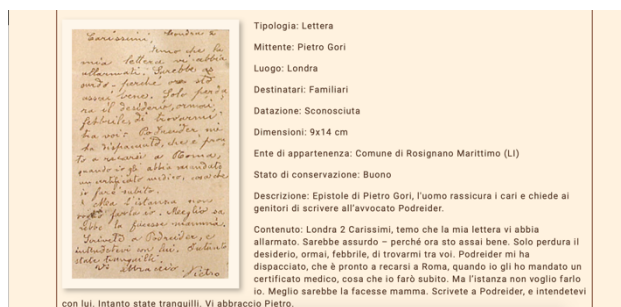 Carissimi, Londra 2
temo che la
mia lettera vi abbia
allarmati. Sarebbe as
surdo, perché ora sto
assai bene. Solo perdu
ra il desiderio, ormai,
febbrile, di trovarmi
tra voi. Podreider mi
ha dispacciato, che è pron
to a recarsi a Roma,
quando io gli abbia mandato
un certificato medico, cosa che
io farò subito.
Ma l'istanza non
voglio farla io. Meglio sa
rebbe la facesse mamma.
Scrivete a Podreider, e
intendetevi con lui. Intanto
state tranquilli.
Vi abbraccio
Pietro
Tipologia: Lettera
Mittente: Pietro Gori
Luogo: Londra
Destinatari: Familiari
Datazione: Sconosciuta
Dimensioni: 9x14 cm
Ente di appartenenza: Comune di Rosignano Marittimo (LI)
Stato di conservazione: Buono
Descrizione: Epistole di Pietro Gori, l'uomo rassicura i cari e chiede ai
genitori di scrivere all'avvocato Podreider.
Contenuto: Londra 2 Carissimi, temo che la mia lettera vi abbia
allarmato. Sarebbe assurdo – perché ora sto assai bene. Solo perdura il
desiderio, ormai, febbrile, di trovarmi tra voi. Podreider mi ha
dispacciato, che è pronto a recarsi a Roma, quando io gli ho mandato un
certificato medico, cosa che io farò subito. Ma l'istanza non voglio farlo
io. Meglio sarebbe la facesse mamma. Scrivete a Podreider, e intendetevi
con lui. Intanto state tranquilli. Vi abbraccio Pietro.